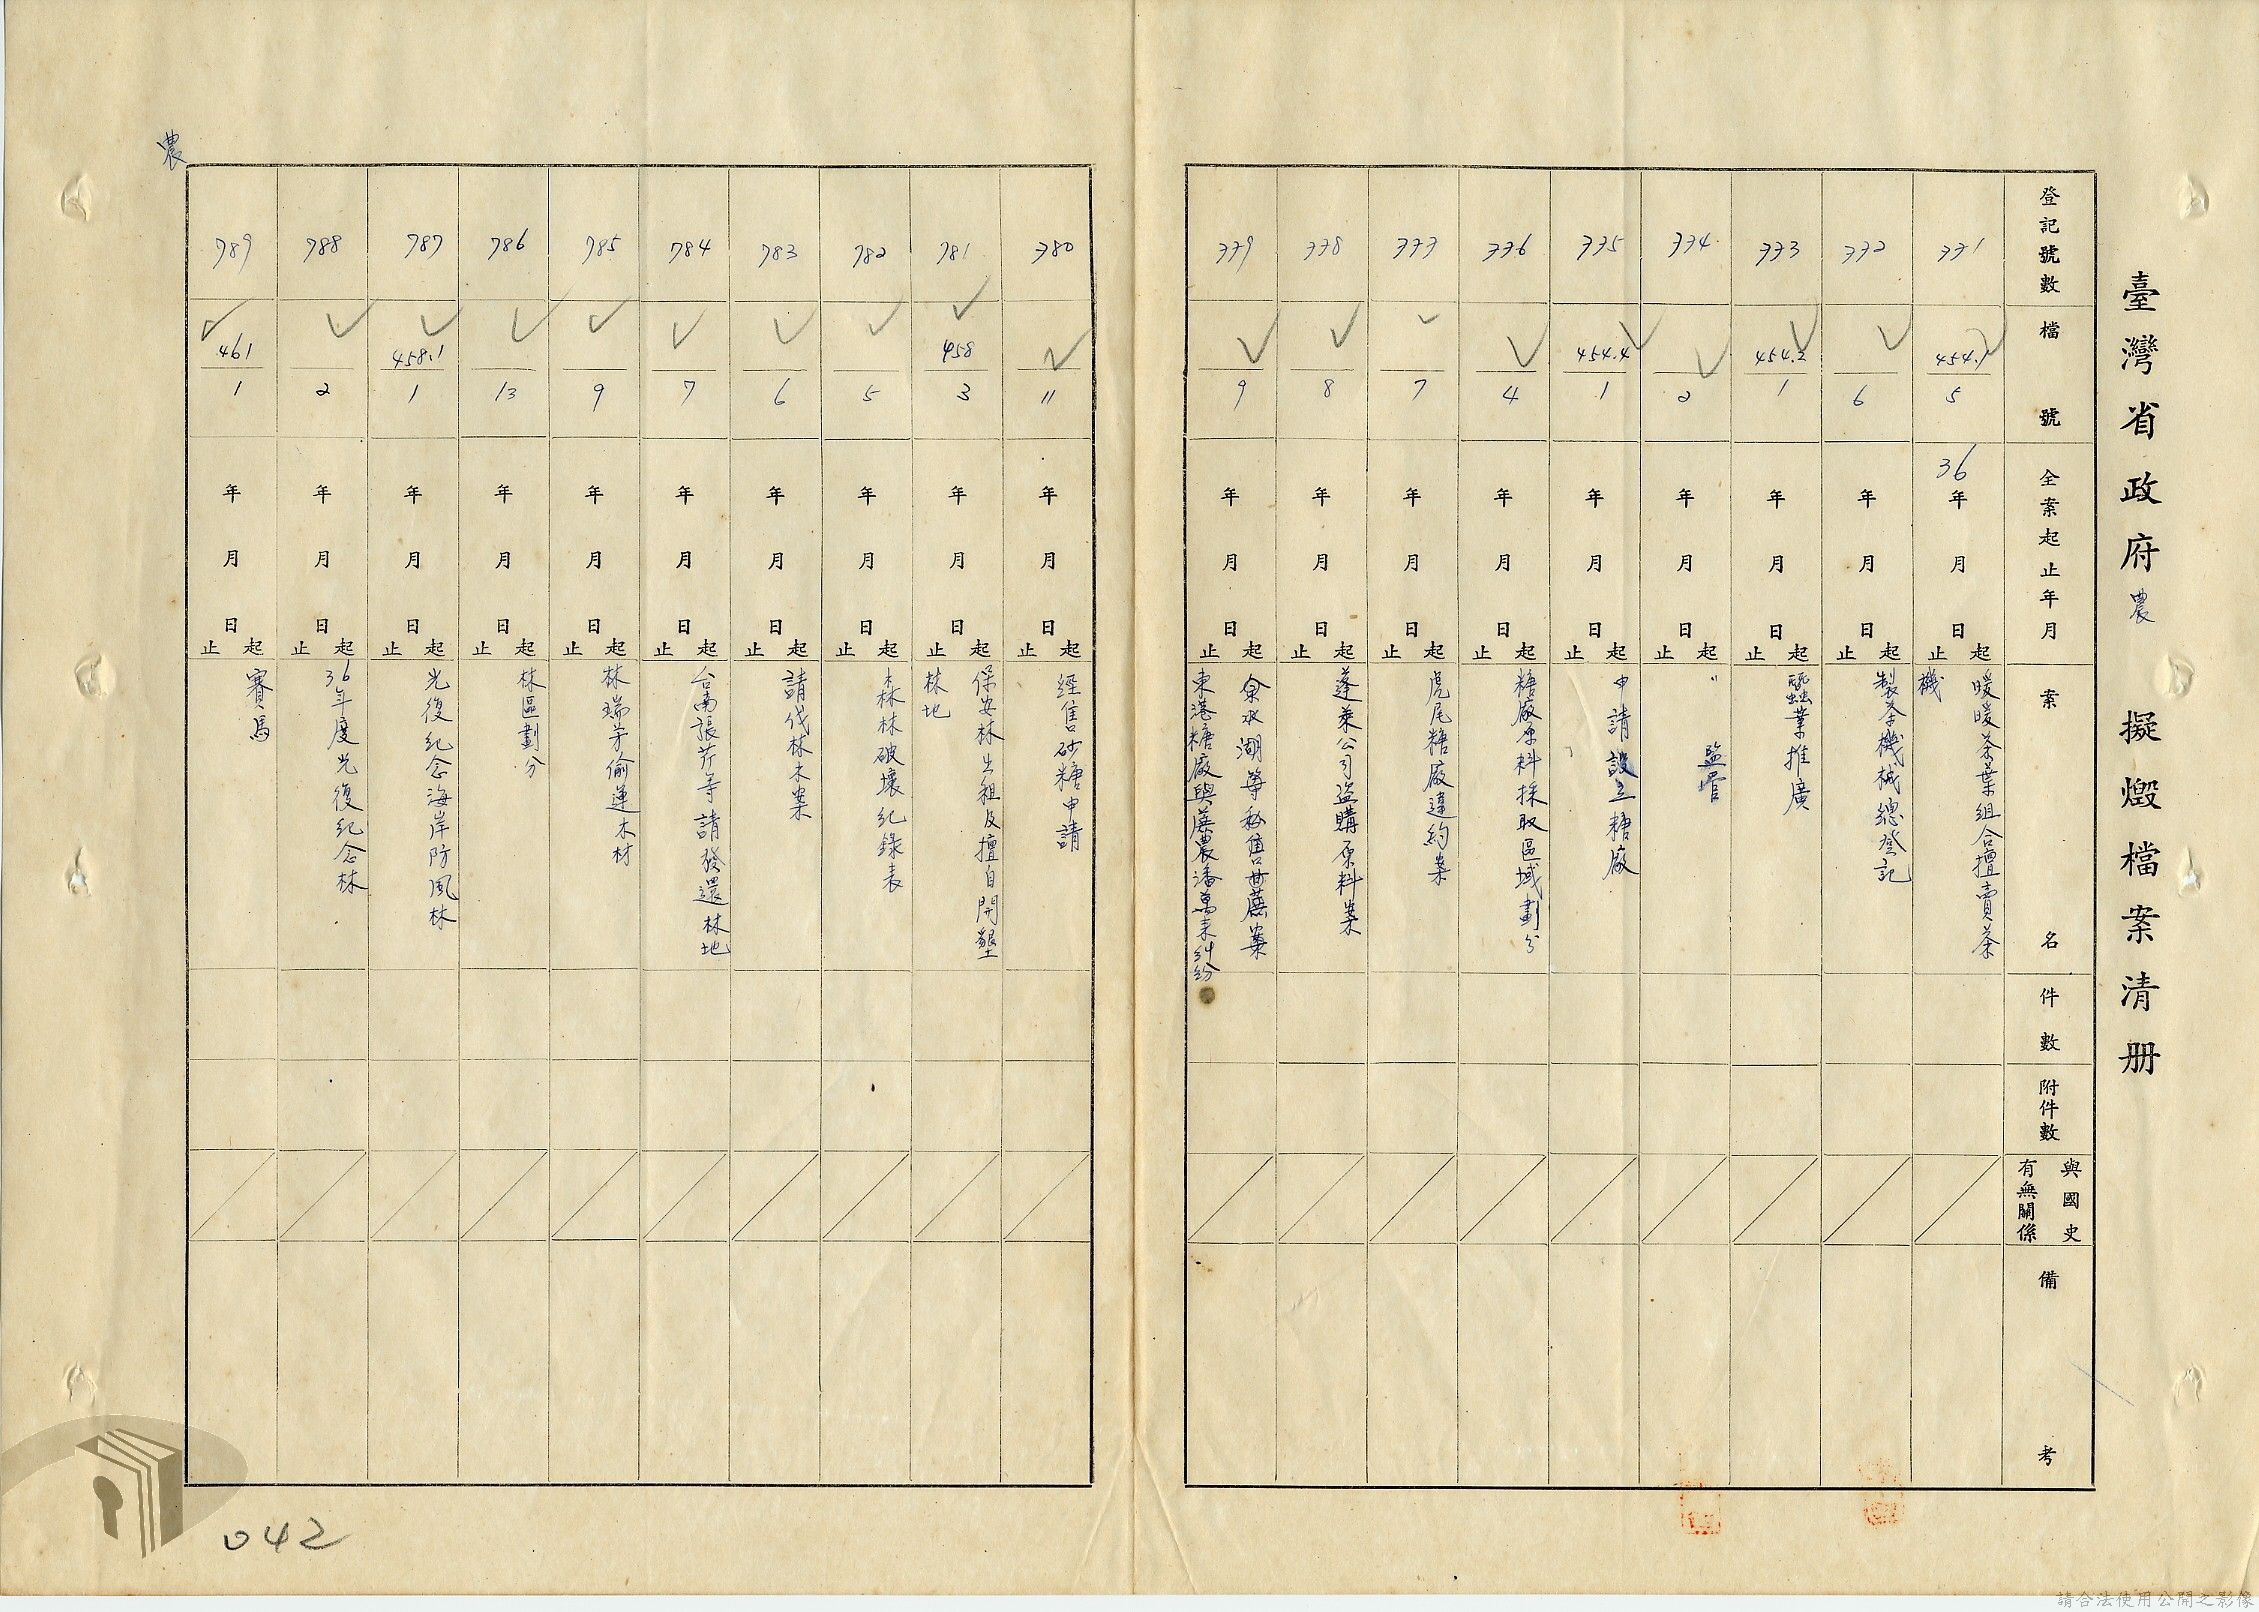 臺灣省政府農 擬燬檔案清册
登記號數
檔號
全案起止年月
案名
件數
附件數
與國史有無關係
備考
771 454.1/5 36年月日起止 暖暖茶葉組合擅賣茶機
772 6 年月日起止 製茶機械總登記
773 454.2/1 年月日起止 蠶業推廣
774 2 年月日起止 〃 監管
775 454.4/1 年月日起止 申請設立糖廠
776 4 年月日起止 糖廠原料採取區域劃分
777 7 年月日起止 虎尾糖廠違約案
778 8 年月日起止 蓬萊公司盜購原料案
779 9 年月日起止 余水湖等私售甘蔗案
東港糖廠與蔗農潘萬來糾紛
780 11 年月日起止 經售砂糖申請
781 458/3 年月日起止 保安林出租及擅自開墾林地
782 5 年月日起止 森林破壞紀錄表
783 6 年月日起止 請伐林木案
784 7 年月日起止 台南張芹等請發還林地
785 9 年月日起止 林瑞芳偷運木材
786 13 年月日起止 林區劃分
787 458.1/1 年月日起止 光復紀念海岸防風林
788 2 年月日起止 36年度光復紀念林
789 461/1 年月日起止 賽馬
農
042
請合法使用公開之影像